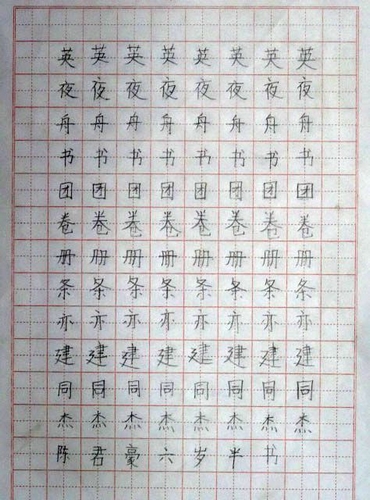 英英英英英英英英
夜夜夜夜夜夜夜夜
舟舟舟舟舟舟舟舟
书书书书书书书书
团团团团团团团团
卷卷卷卷卷卷卷卷
册册册册册册册册
条条条条条条条条
亦亦亦亦亦亦亦亦
建建建建建建建建
同同同同同同同同
杰杰杰杰杰杰杰杰
陈君豪六岁半书